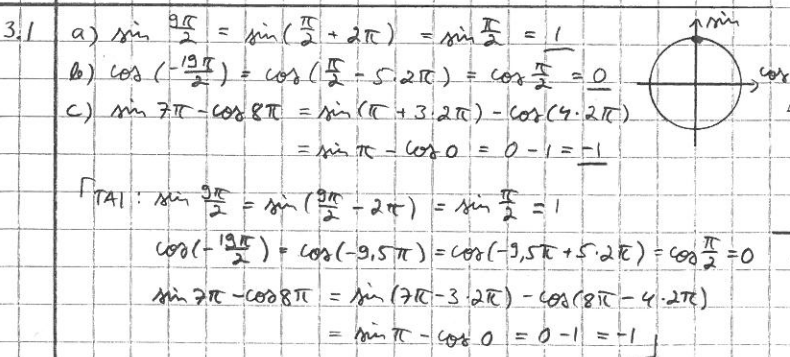 3.1 a) sin 9π/2 = sin(π/2 + 2π) = sin π/2 = 1
sin
b) cos(-19π/2) = cos(π/2 - 5·2π) = cos π/2 = 0
cos
c) sin 7π - cos 8π = sin(π + 3·2π) - cos(4·2π)
= sin π - cos 0 = 0 - 1 = -1
[TAI: sin 9π/2 = sin(9π/2 - 2π) = sin π/2 = 1
cos(-19π/2) = cos(-9,5π) = cos(-9,5π + 5·2π) = cos π/2 = 0
sin 7π - cos 8π = sin(7π - 3·2π) - cos(8π - 4·2π)
= sin π - cos 0 = 0 - 1 = -1 ]